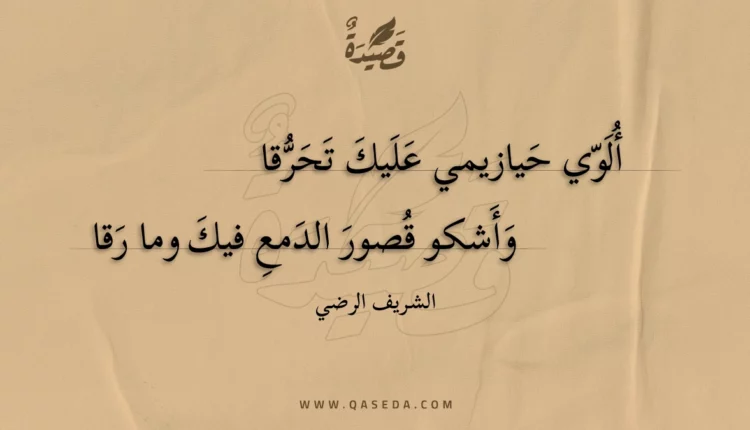 قَصِيْدَةٌ
أُلَوّي حَيازيمي عَلَيكَ تَحَرُّقا
وَأَشكو قُصورَ الدَمعِ فيكَ وما رَقا
الشريف الرضي
WWW.QASEDA.COM